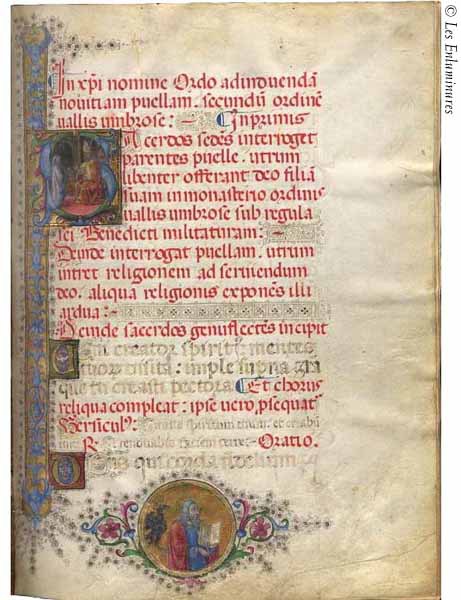 In xpi nomine Ordo adinduendā
novitiam puellam. secundū ordinē
uallis umbrose: Inprimis
Sacerdos sedēs interroget
parentes puelle. utrum
libenter offerant deo filiā
suam in monasterio ordinis
uallis umbrose sub regula
sci Benedicti militaturam:
Deinde interrogat puellam. utrum
intret religionem ad seruiendum
deo. aliqua religionis exponēs illi
ardua:
Deinde sacerdos genuflectēs incipit
Ueni creator spiritꝰ. mentes
tuorū uisita: imple supna grā
que tu creasti pectora. Et chorus
reliqua compleat: ipse uero, psequat
Uersiculū: Emitte spiritum tuum. et creabūtur
R. Et renouabis faciem terre: Oratio.
Deus qui corda fidelium
© Les Enluminures